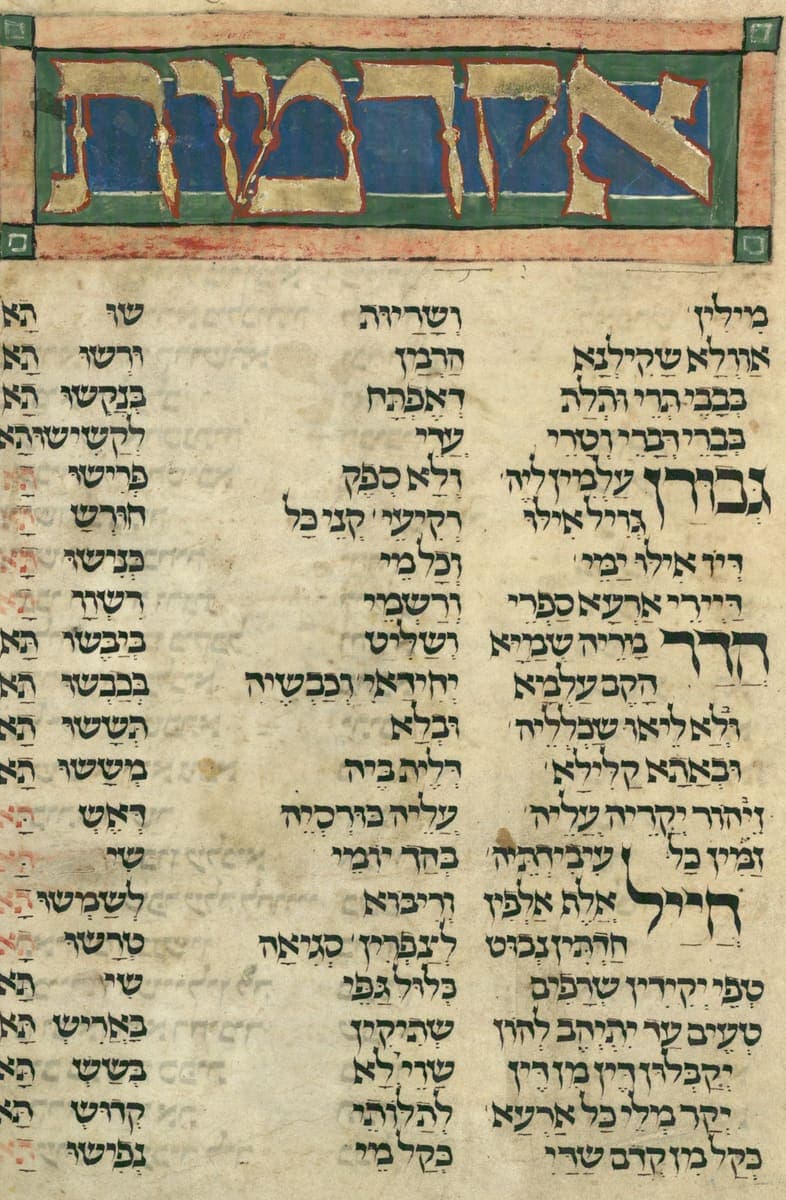 אקדמות
מילין ושריות שו תא
אוולא שקילנא הרמן ורשו תא
בבבי תרי ותלת דאפתח בנקשו תא
בברי דברי וטרי עדי לקשישותא
גבורן עלמין ליה ולא ספק פרישו תא
גויל אילו רקיעי קני כל חורש תא
דיו אילו ימי וכל מי כנישו תא
דיירי ארעא ספרי ורשמי רשוו תא
הדר מריה שמיא ושליט ביבשו תא
הקם עלמא יחידאי וכבשיה בכבשו תא
ולא ליאו שכלליה ובלא תששו תא
ובאתא קלילא דלית ביה מששו תא
זיהור יקריה עליה עליה כורסיה דאש תא
זמין כל עיבידתיה בהך יומי שי תא
חייל אלף אלפין וריבוא לשמשו תא
חדתין נבוט לצפרין סגיאה טרשו תא
טפי יקידין שרפים כלול גפי שי תא
טעים עד יתיהב להון שתיקין באדיש תא
יקבלון דין מן דין שוי לא בשש תא
יקר מלי כל ארעא לתלותי קדוש תא
כקל מן קדם שדי כקל מי נפישו תא